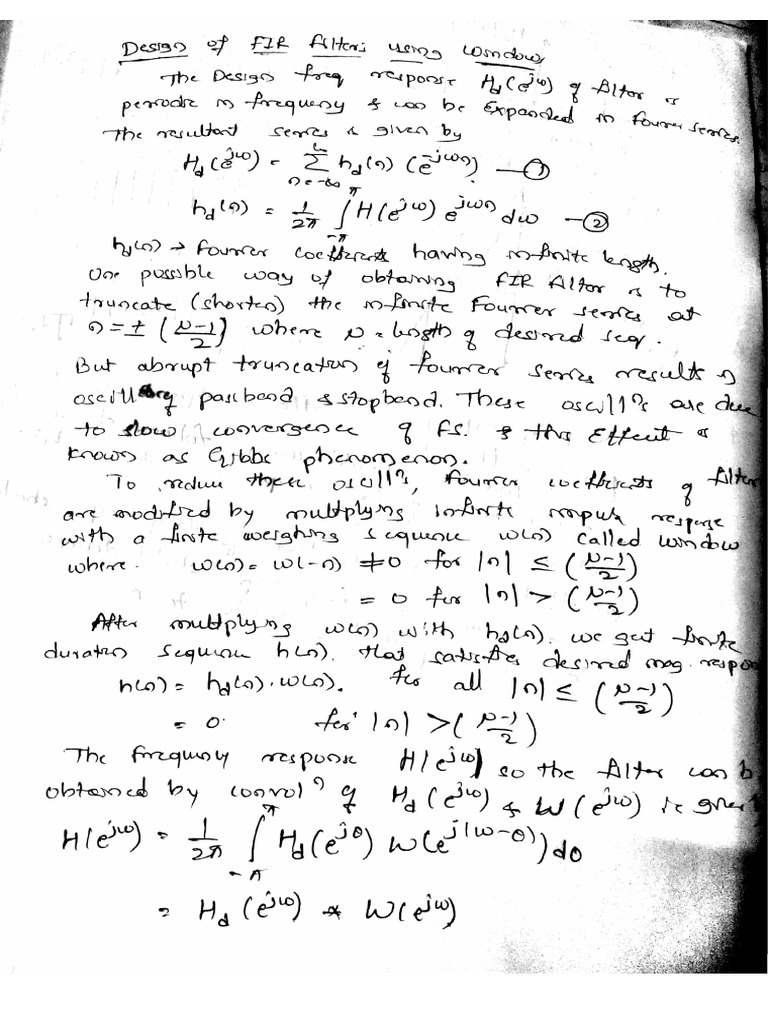 Design of FIR filters using window
The Design freq response H_d(e^{jω}) of filter is
periodic in frequency & can be Expanded in fourier series.
The resultant series is given by
H_d(e^{jω}) = Σ_{n=-∞}^{∞} h_d(n) (e^{-jωn}) —①
h_d(n) = 1/2π ∫_{-π}^{π} H(e^{jω}) e^{jωn} dω —②
h_d(n) → fourier coefficients having infinite length.
One possible way of obtaining FIR filter is to
truncate (shorten) the infinite Fourier series at
n = ± (N-1/2) where N = length of desired seq.
But abrupt truncation of fourier series results in
oscill passband & stopband. These oscillⁿs are due
to slow convergence of F.S. & this Effect is
known as Gibbs phenomenon.
To reduce these oscillⁿs, fourier coefficients of filter
are modified by multplying infinite impulse response
with a finite weighing sequence w(n) called window
where w(n) = w(-n) ≠ 0 for |n| ≤ (N-1/2)
= 0 for |n| > (N-1/2)
After multplying w(n) with h_d(n), we get finite
duration sequence h(n), that satisfies desired mag. respon
h(n) = h_d(n).w(n). for all |n| ≤ (N-1/2)
= 0. for |n| > (N-1/2)
The frequency response H(e^{jω}) so the filter can b
obtained by convolⁿ of H_d(e^{jω}) & W(e^{jω}) is given
H(e^{jω}) = 1/2π ∫_{-π}^{π} H_d(e^{jθ}) W(e^{j(ω-θ)}) dθ
= H_d(e^{jω}) * W(e^{jω})